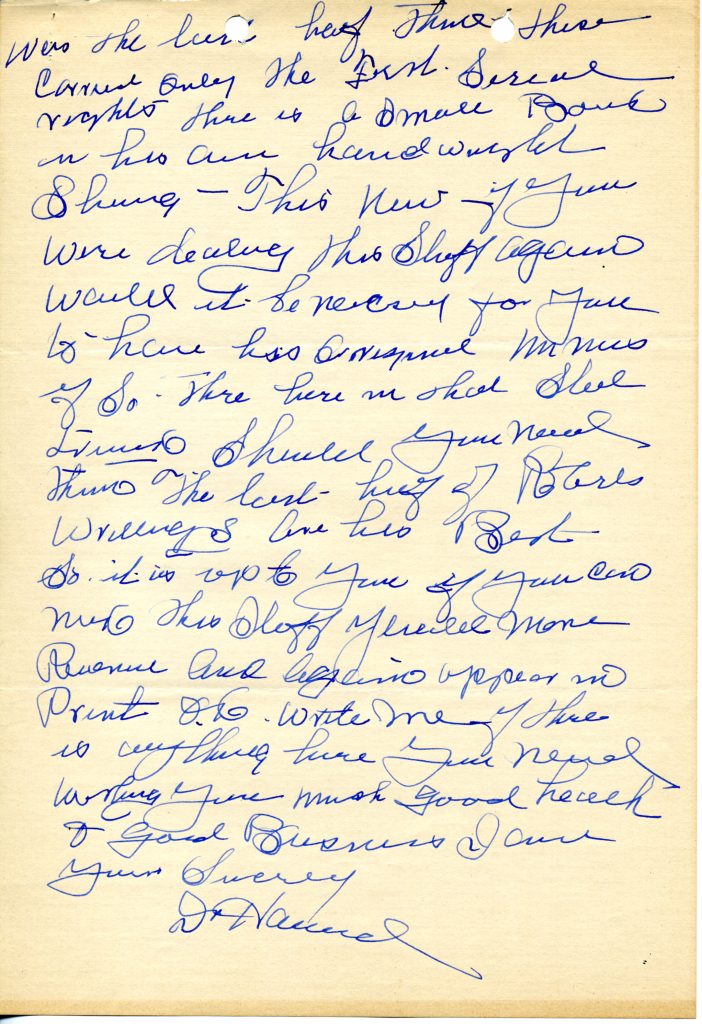 Were the last half these
carried only the First Serial
rights there is a small Book
in his own handwright
Showing — This now if you
were dealing this Stuff again
would it be necessary for you
to have his original
if so. there here in that Steel
Trunk Should you need
them The last half of Roberts
Writings are his Best
So it is up to you if you can
make this Stuff yield more
Revenue and again appear in
Print O.K. Write me if there
is anything here you need
wishing you much good health
& Good Business I am
Yours
Dr Howard